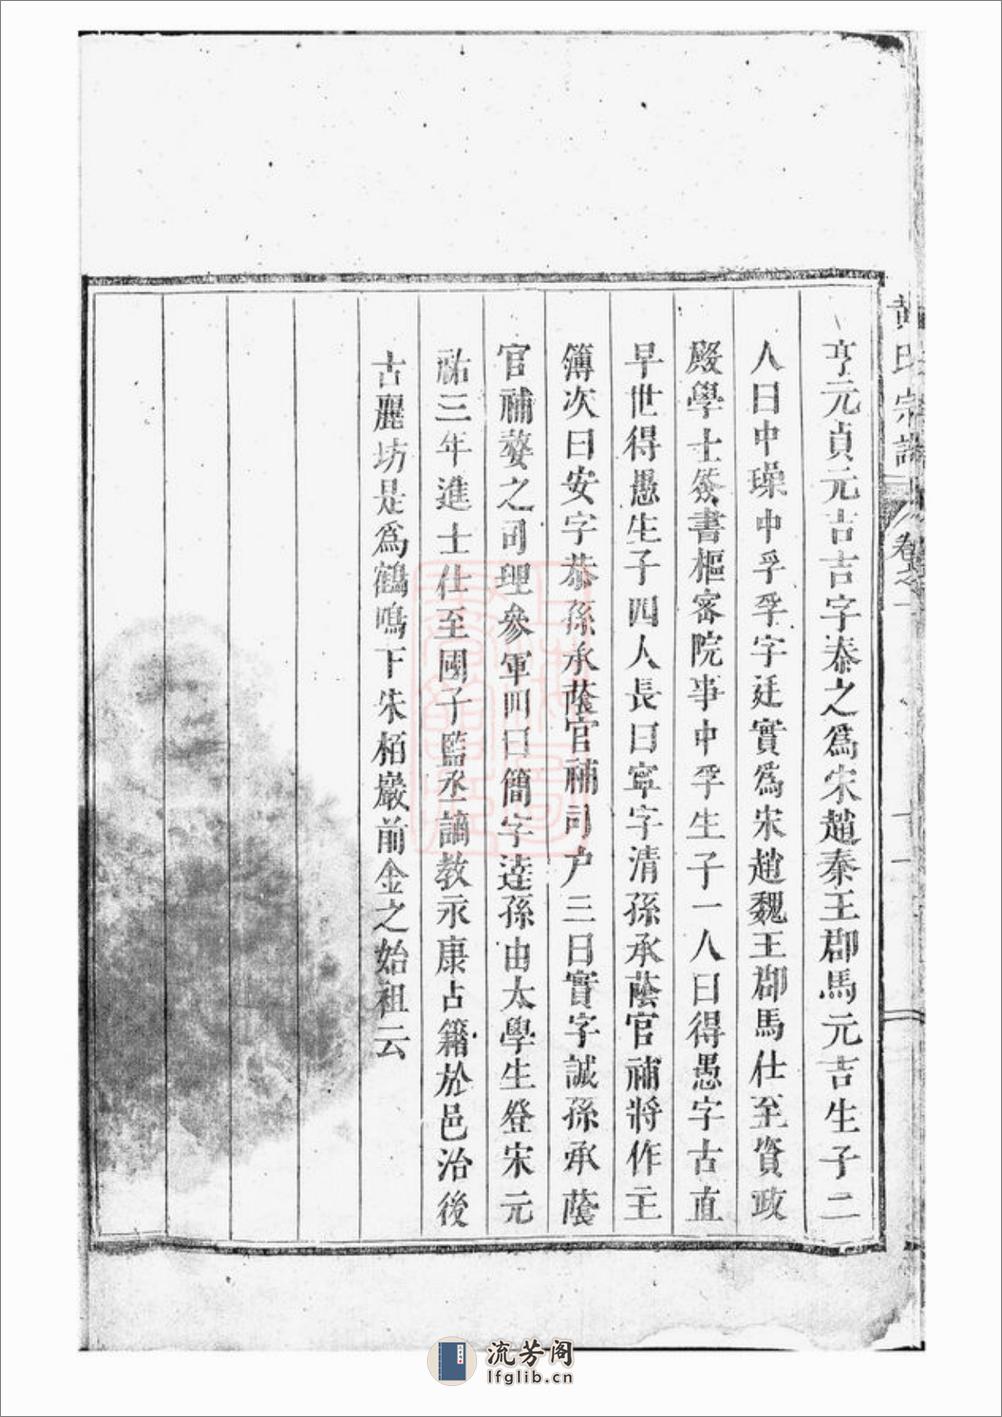 亨元貞元吉吉字泰之爲宋趙秦王郡馬元吉生子二
人曰中璪中孚孚字廷實爲宋趙魏王郡馬仕至資政
殿學士簽書樞密院事中孚生子一人曰得愚字古直
早世得愚生子四人長曰寧字清孫承蔭官補將作主
簿次曰安字恭孫承蔭官補司户三曰實字誠孫承蔭
官補婺之司理參軍四曰簡字逵孫由太學生登宋元
祐三年進士仕至國子監丞謫教永康占籍於邑治後
古麗坊是爲鶴鳴下朱栢巖前金之始祖云
黄氏宗譜
卷之一
流芳阁
lfglib.cn